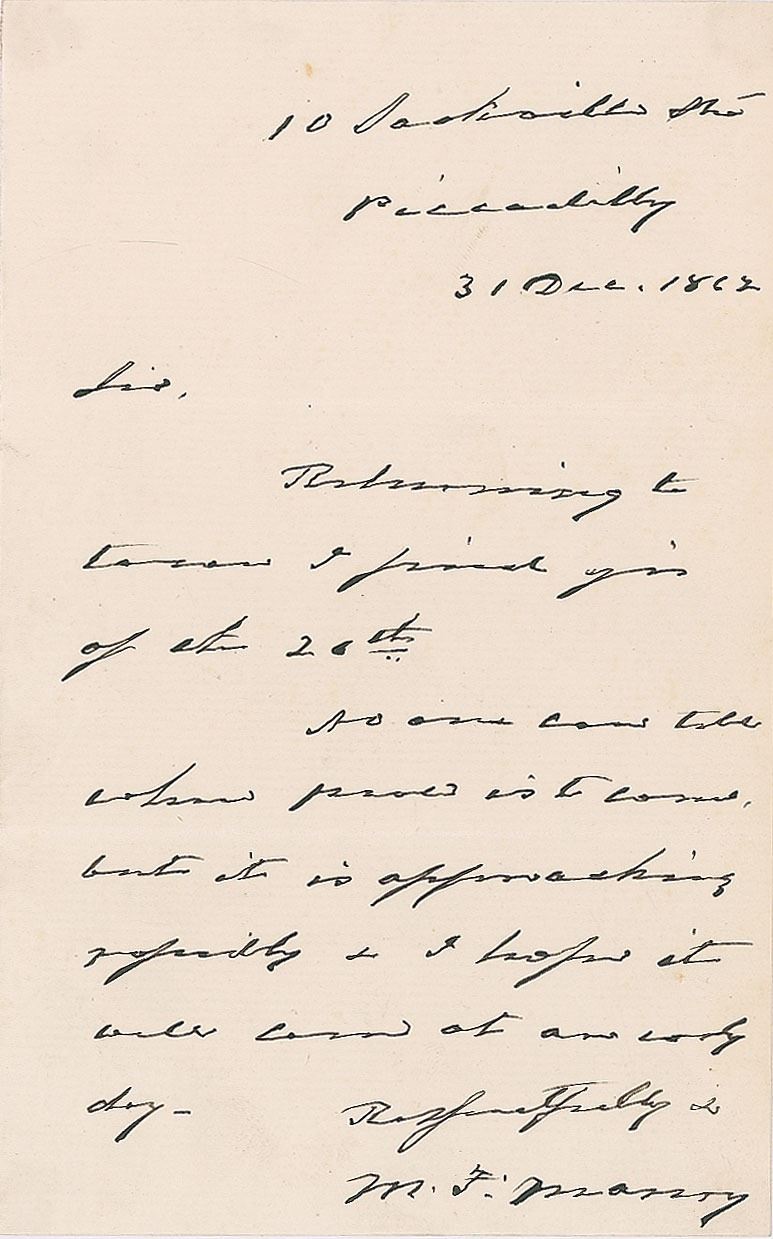 10 Sackville Str
Piccadilly
31 Dec. 1862
Sir,
Returning to
town I find yrs
of the 26th
No one can tell
when peace is to come,
but it is approaching
rapidly & I hope it
will come at an early
day –
Respectfully &
M. F. Maury